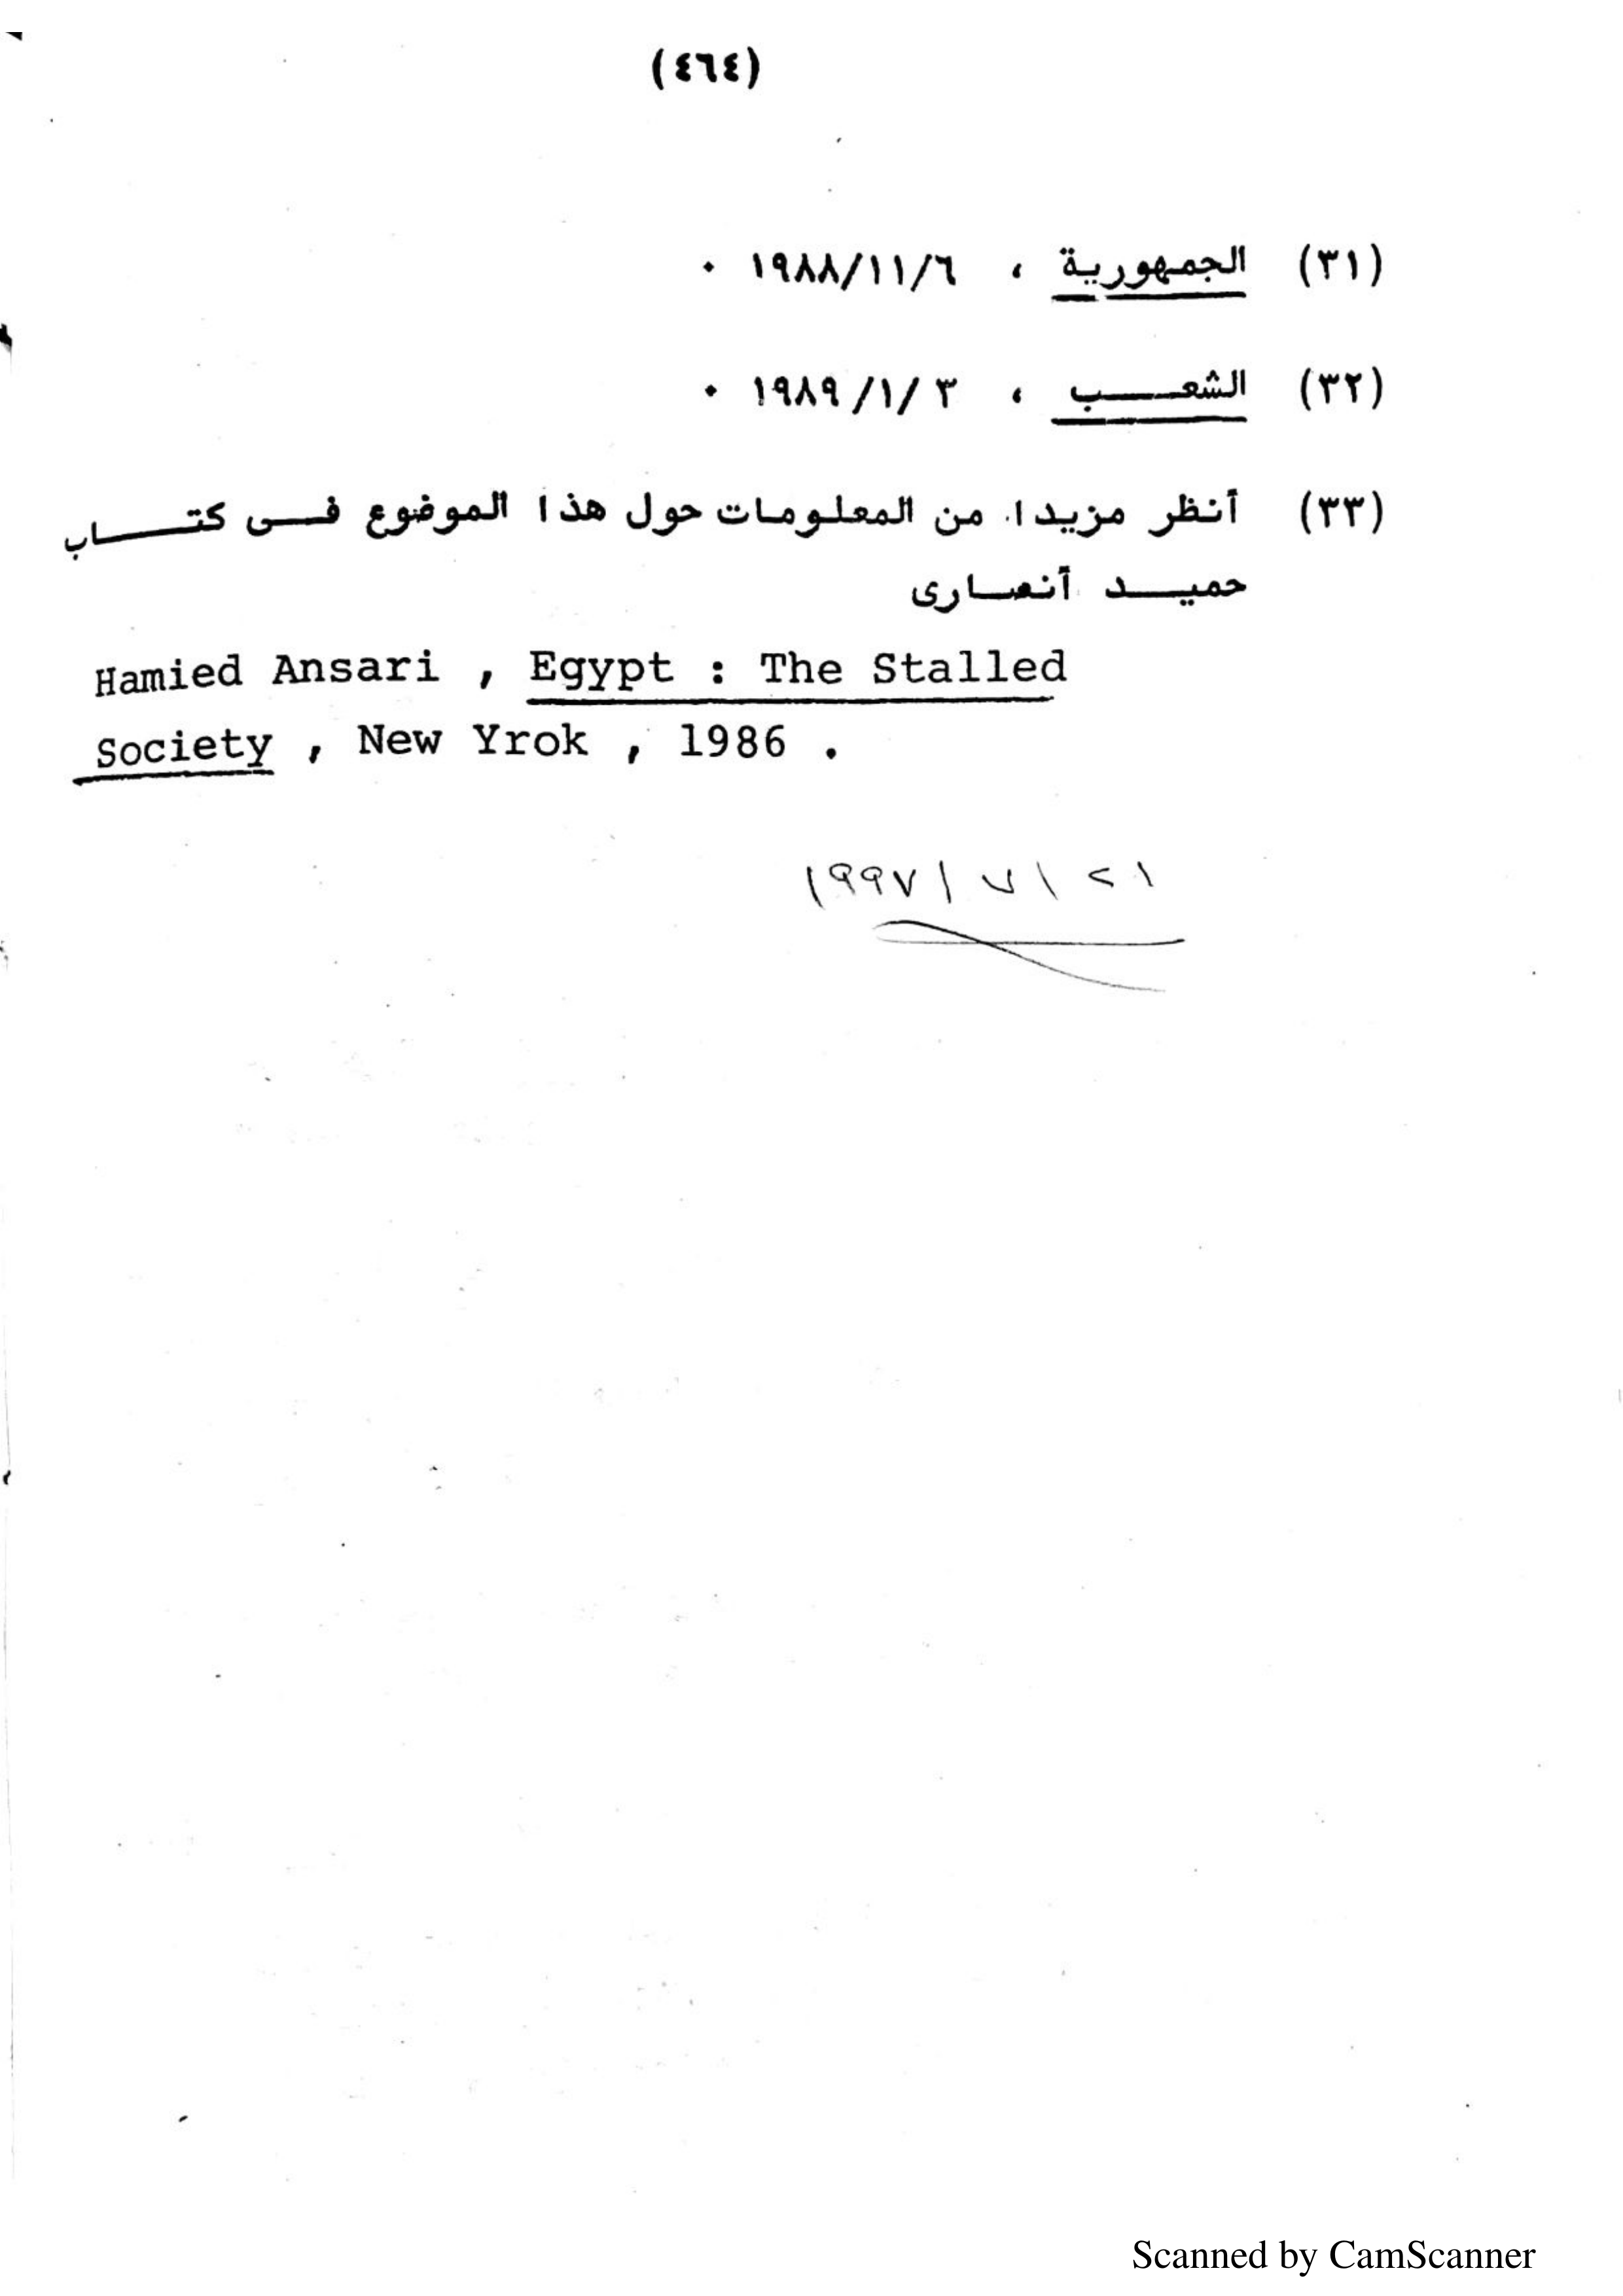 (٤٦٤)
(٣١) الجمهورية ، ١٩٨٨/١١/٦ ٠
(٣٢) الشعـــب ، ١٩٨٩/١/٣ ٠
(٣٣) أنظر مزيدا من المعلومات حول هذا الموضوع فــى كتـــاب
حميــد أنصــارى
Hamied Ansari , Egypt : The Stalled
Society , New Yrok , 1986 .
٢١ / ٧ / ١٩٩٧
Scanned by CamScanner